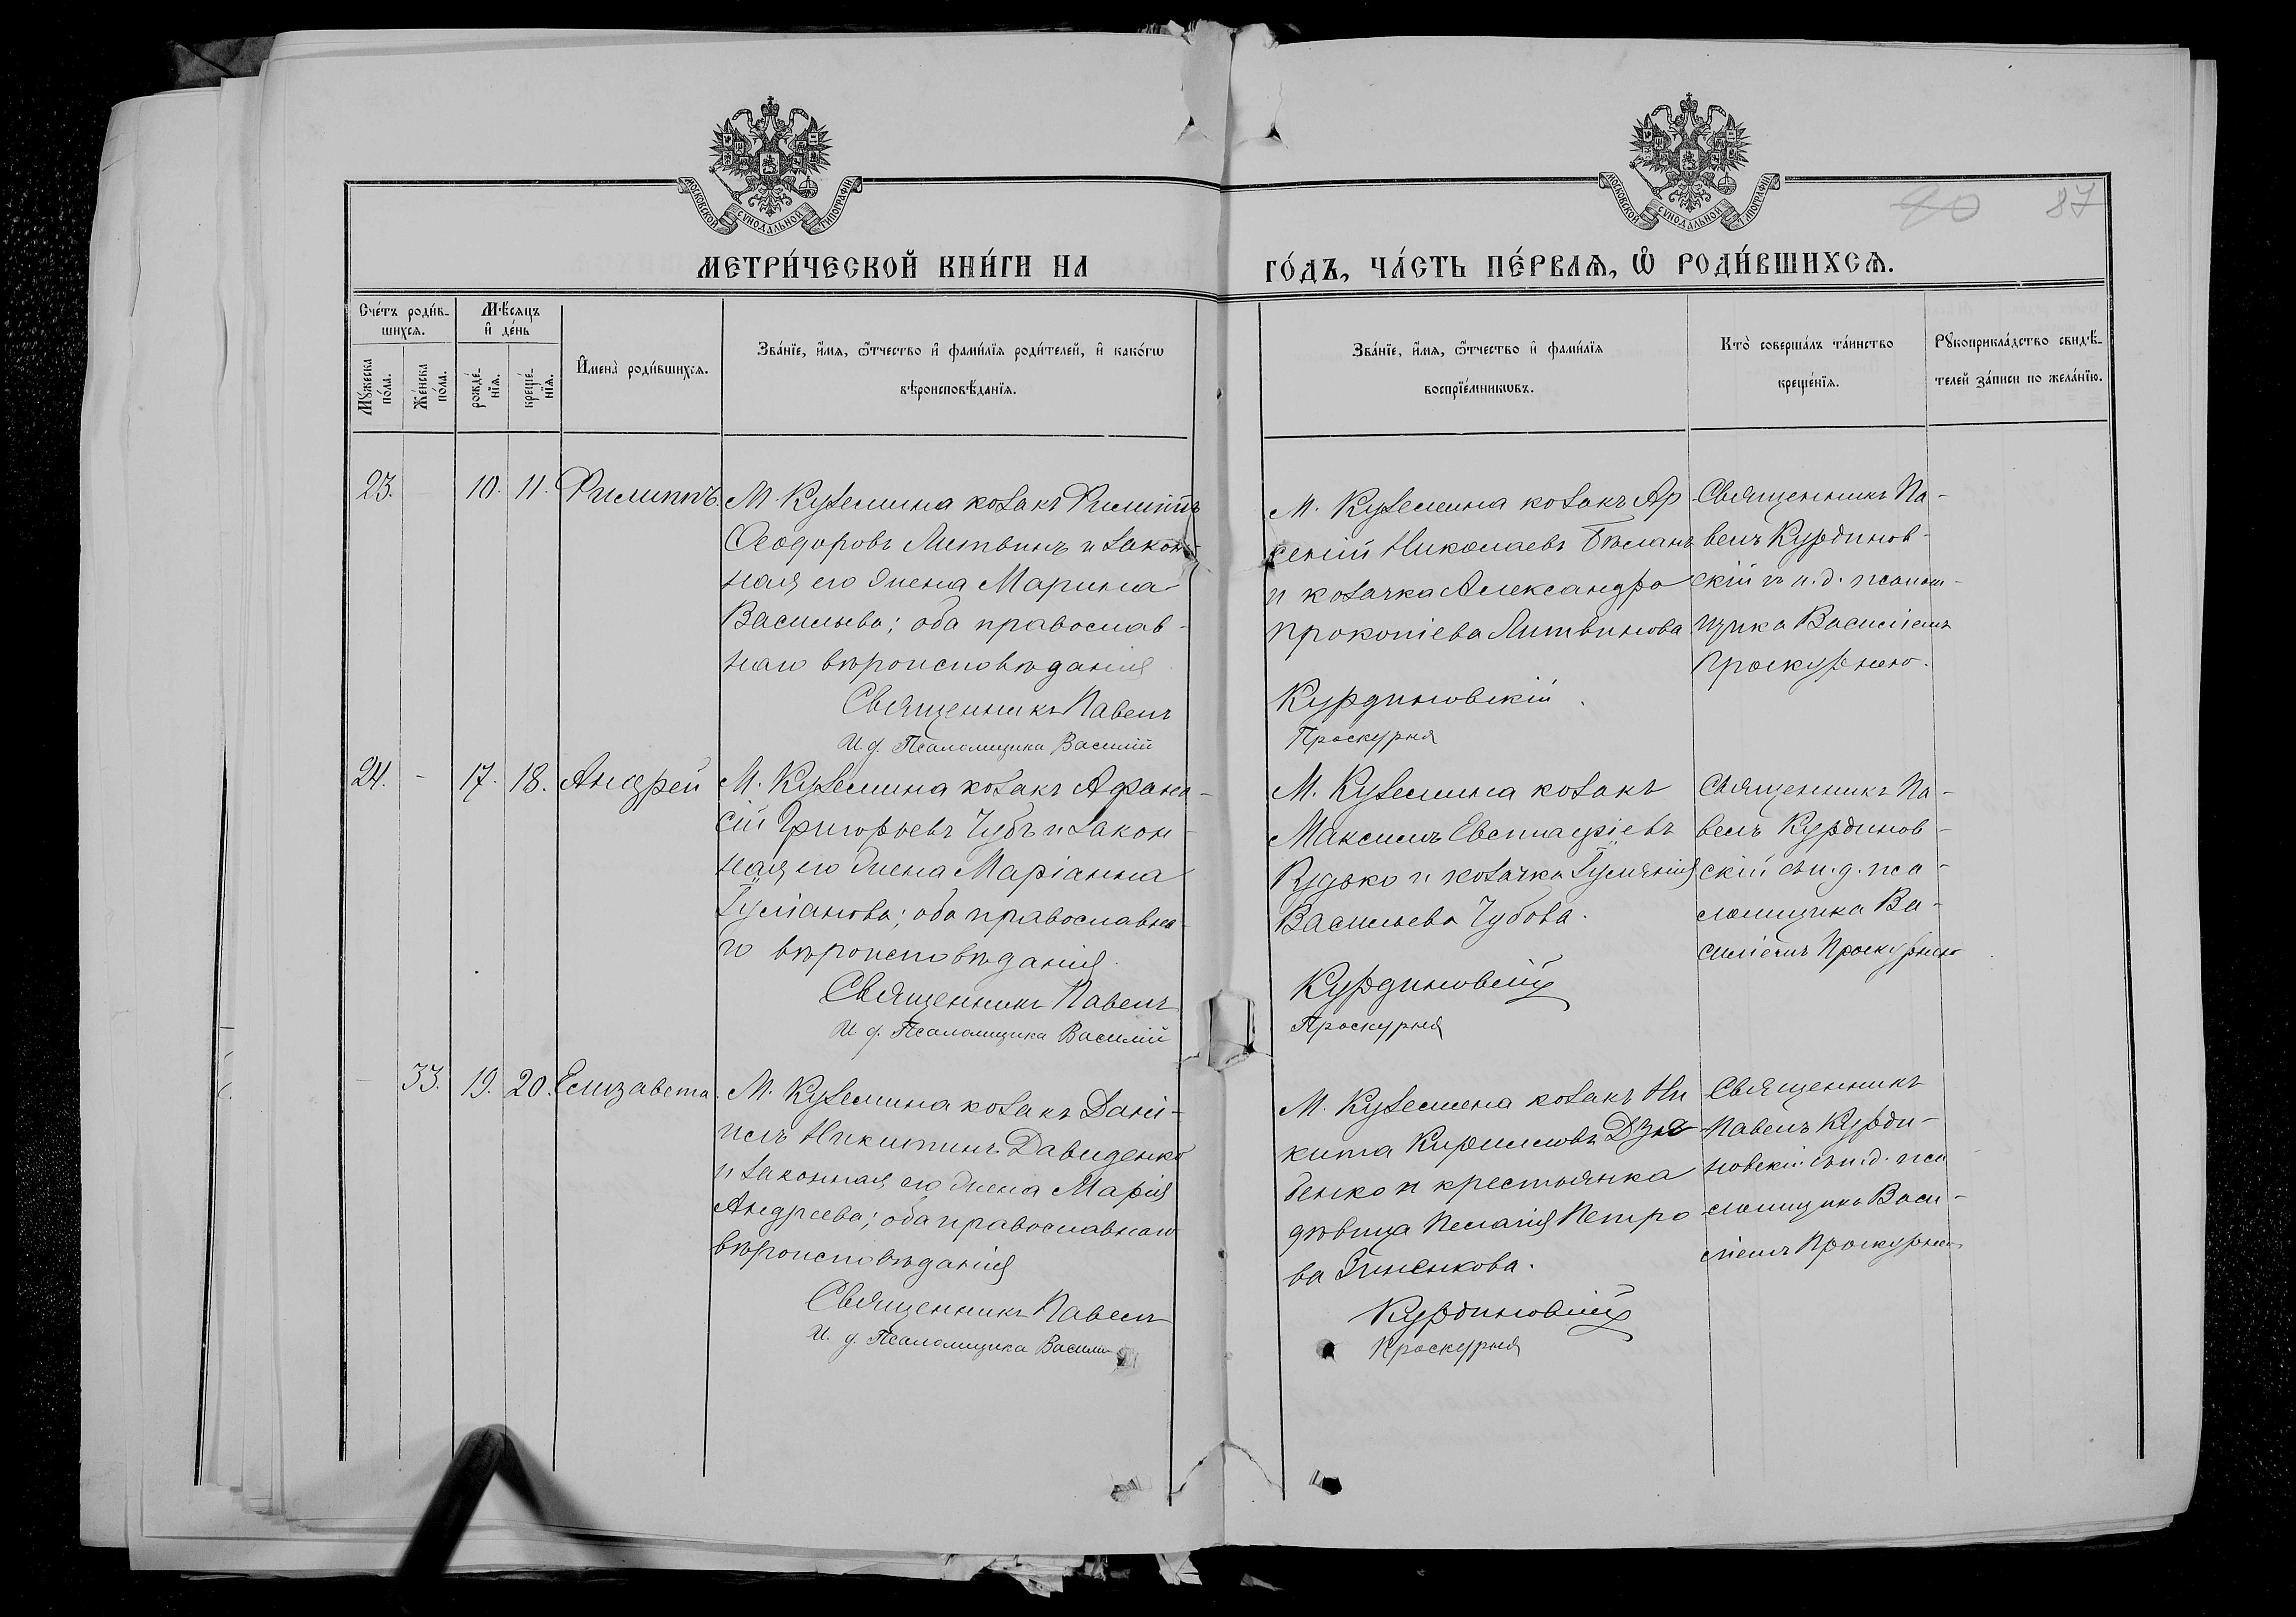 МОСКОВСКОЙ СѴНОДАЛЬНОЙ ТИПОГРАФІИ
МОСКОВСКОЙ СѴНОДАЛЬНОЙ ТИПОГРАФІИ
87
МЕТРИ́ЧЕСКОЙ КНИ́ГИ НА
ГО́ДЪ, ЧА́СТЬ ПЕ́РВАѦ, Ѡ҆ РОДИ́ВШИХСѦ.
Сче́тъ роди́в-
шихсѧ.
Мꙋжеска по́ла.
Же́нска по́ла.
Мѣ́сѧцъ
и҆ де́нь
рожде́-
нїѧ.
креще́-
нїѧ.
И҆мена̀ роди́вшихсѧ.
Зва́нїе, и҆́мѧ, ѻ҆́тчество и҆ фами́лїѧ роди́телей, и҆ како́гѡ
вѣроисповѣ́данїѧ.
Зва́нїе, и҆́мѧ, ѻ҆́тчество и҆ фами́лїѧ
воспрїе́мникѡвъ.
Кто̀ соверша́лъ та́инство
креще́нїѧ.
Рꙋкоприкла́дство свидѣ́-
телей за́писи по жела́нїю.
23.
10.
11.
Филиппъ.
М. Куземина козакъ Филиппъ
Ѳеодоровъ Литвинъ и закон-
ная его жена Марина
Васильева; оба православ-
наго вѣроисповѣданія
Священникъ Павелъ
И. д. Псаломщика Василій
М. Куземина козакъ Ар
сеній Николаевъ Бѣланъ
и козачка Александра
Прокопіева Литвинова
Курдиновскій
Проскурня
Священникъ Па-
велъ Курдинов-
скій съ и. д. псалом-
щика Василіемъ
Проскурнею.
24.
-
17.
18.
Андрей
М. Куземина козакъ Афана-
сій Григорьевъ Чубъ и закон-
ная его жена Маріанна
Іуліанова; оба православна-
го вѣроисповѣданія.
Священникъ Павелъ
И. д. Псаломщика Василій
М. Куземина козакъ
Максимъ Евстафіевъ
Рудько и козачка Іуліанія
Васильева Чубова.
Курдиновскій
Проскурня
Священникъ Па-
велъ Курдинов-
скій съ и. д. пса-
ломщика Ва-
силіемъ Проскурнею
33.
19.
20.
Елизавета.
М. Куземина козакъ Дані-
илъ Никитинъ Давиденко
и законная его жена Марія
Андреева; оба православнаго
вѣроисповѣданія
Священникъ Павелъ
И. д. Псаломщика Василій
М. Куземина козакъ Ни
кита Кирилловъ Дзю-
бенко и крестьянка
дѣвица Пелагія Петро
ва Зиненкова.
Курдиновскій
Проскурня
Священникъ
Павелъ Курди-
новскій съ и. д. пса
ломщика Васи-
ліемъ Проскурнею